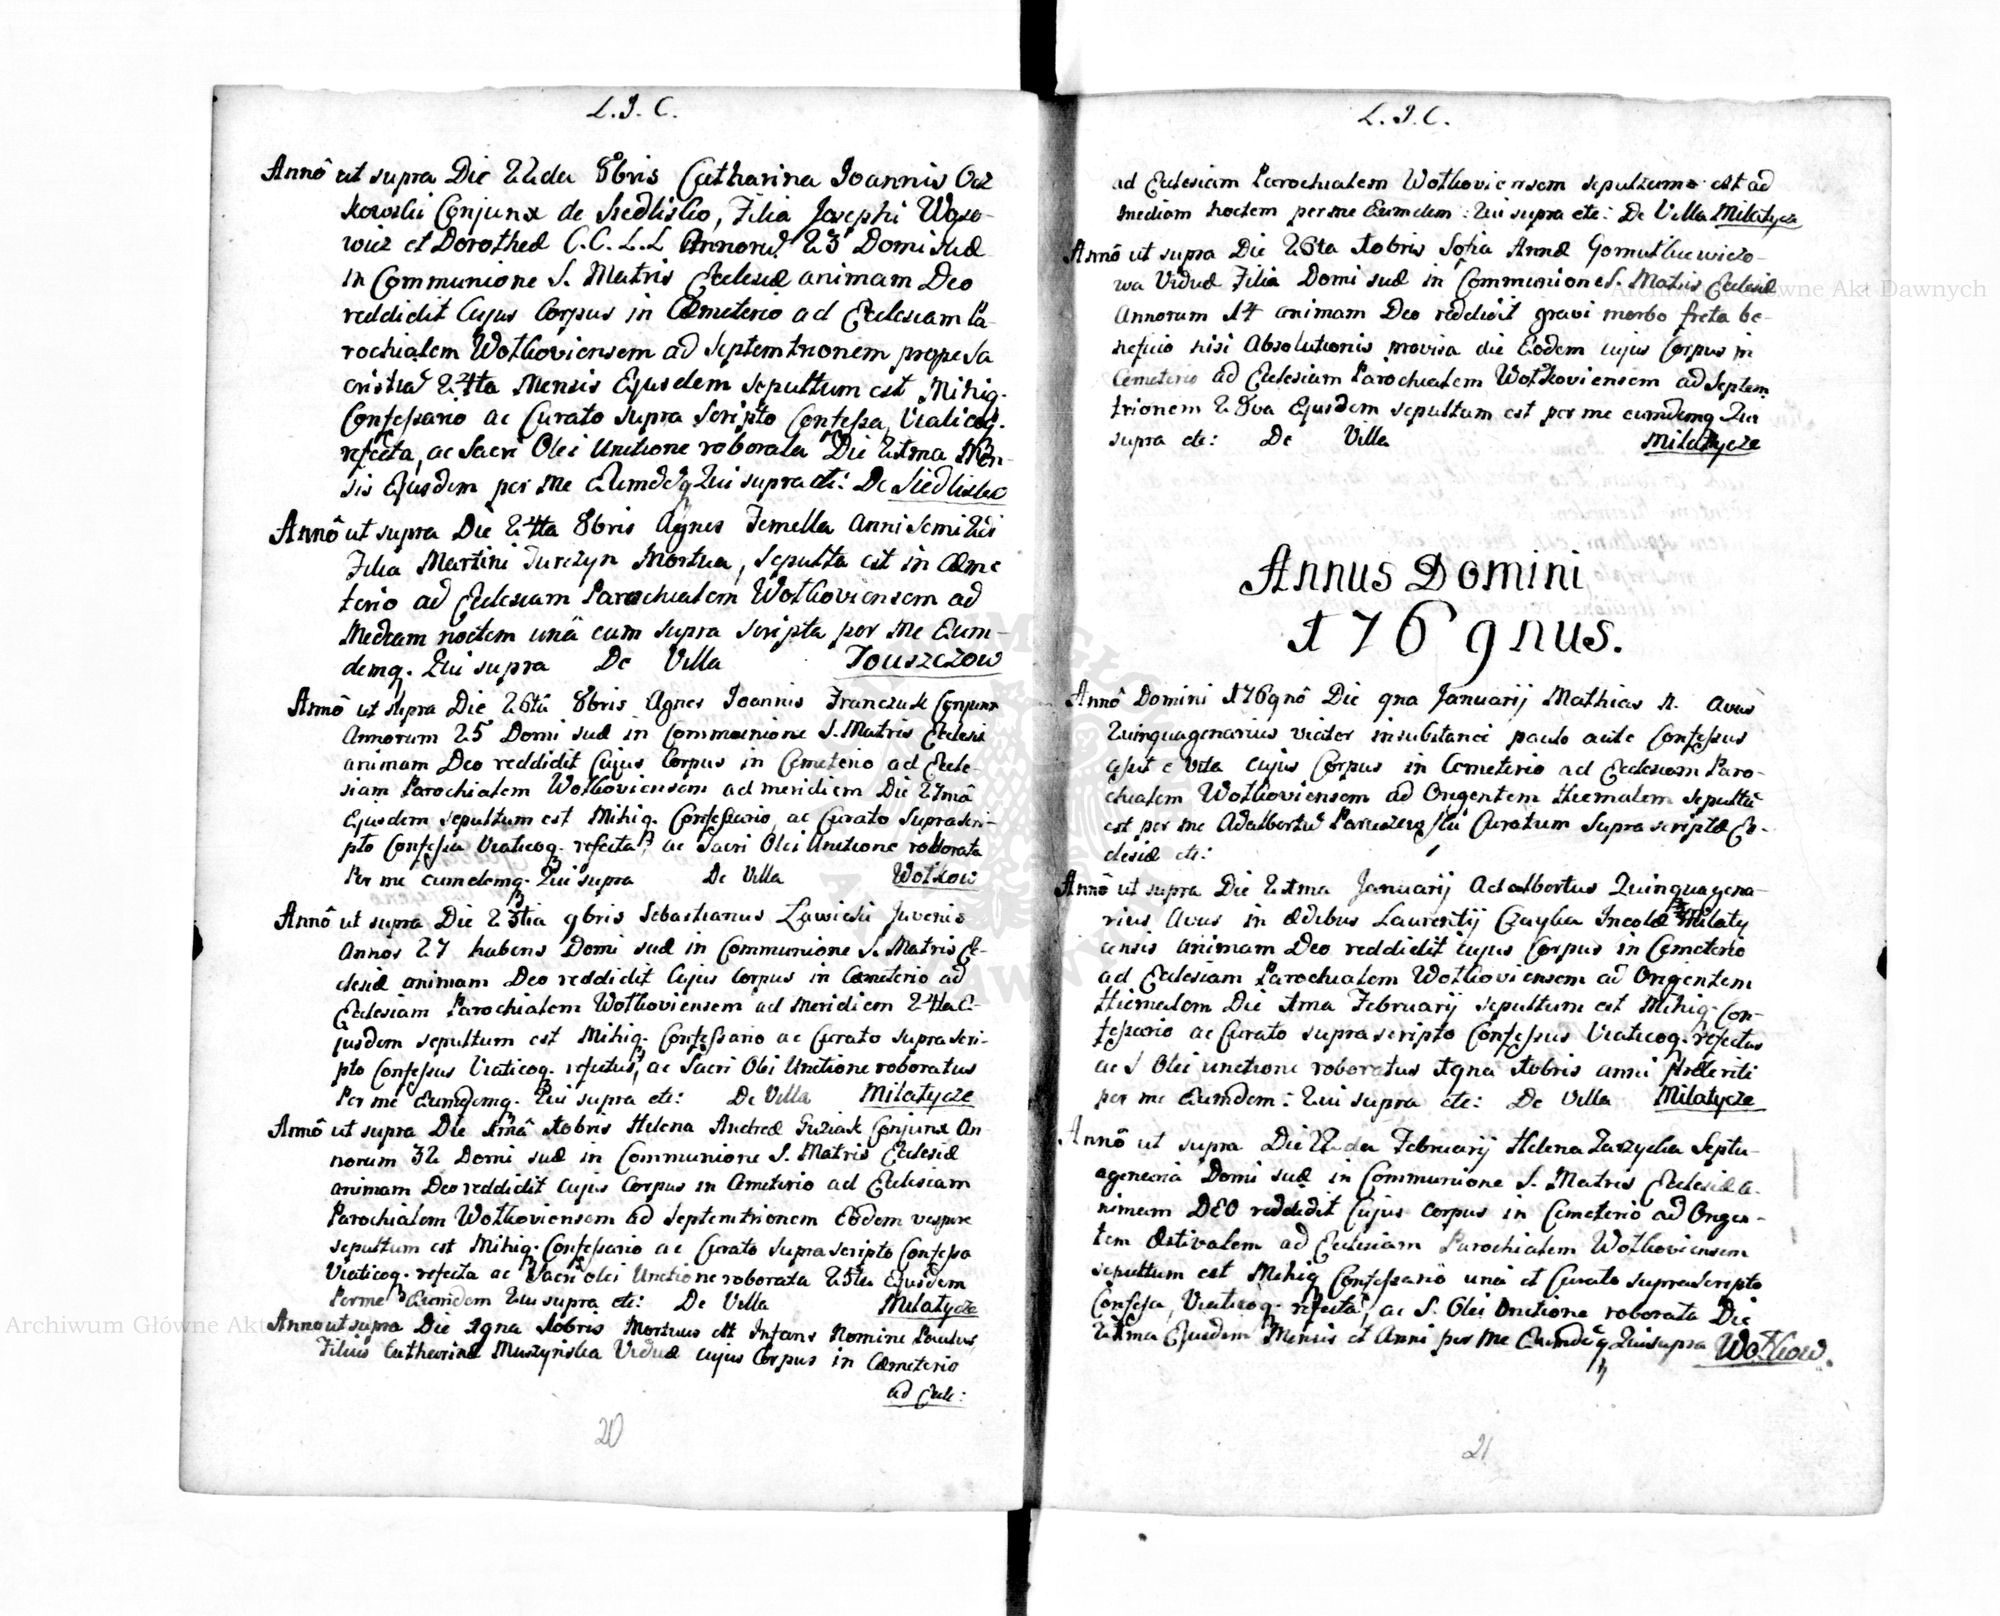 L. J. C.
Annô ut supra Die 22da 8bris Catharina Joannis
kowski Conjunx de Siedlisko, Filia Josephi Wąso-
wicz et Dorotheæ C. C. L. L. Annorū 23 Domi suæ
in Communione S. Matris Ecclesiæ animam Deo
reddidit Cujus Corpus in Cæmeterio ad Ecclesiam Pa-
rochialem Wołkoviensem ad Septemtrionem prope Sa
cristiā 24ta Mensis Ejusdem sepultum est Mihiq.
Confessario ac Curato supra Scripto Confessa, Viaticoq.
refecta, ac Sacri Olei Unctione roborata Die 21ma Men-
sis Ejusdem per Me Eumdēq Qui supra etc: De Siedlisko
Annô ut supra Die 24ta 8bris Agnes Femella Anni Semi
Filia Martini Jurczyn Mortua, Sepulta est in Cæme
terio ad Ecclesiam Parochialem Wołkoviensem ad
Mediam noctem unâ cum supra scripta per Me Eum-
demq. Qui supra De Villa Touszczow
Annô ut supra Die 26tâ 8bris Agnes Joannis Franczuk Conjunx
Annorum 25 Domi suæ in Communione S. Matris Ecclesiæ
animam Deo reddidit Cujus Corpus in Cemeterio ad Eccle-
siam Parochialem Wołkoviensem ad meridiem Die 27mâ
Ejusdem sepultum est Mihiq. Confessario ac Curato Suprascri-
pto Confessa Viaticoq. refecta, ac Sacri Olei Unctione roborata
Per me eumdemq. Qui supra De Villa Wołkow
Annô ut supra Die 23tia 9bris Sebastianus Zawicki Juvenis
Annos 27 habens Domi suæ in Communione S. Matris Ec-
clesiæ animam Deo reddidit Cujus Corpus in Cæmeterio ad
Ecclesiam Parochialem Wołkoviensem ad Meridiem 24ta E-
jusdem sepultum est Mihiq. Confessario ac Curato suprascri-
pto Confessus Viaticoq. refectus, ac Sacri Olei Unctione roboratus
Per me Eumdemq. Qui supra etc: De Villa Milatycze
Annô ut supra Die 1mâ Xbris Helena Andreæ Guziak Conjunx An-
norum 32 Domi suæ in Communione S. Matris Ecclesiæ
animam Deo reddidit Cujus Corpus in Cmeterio ad Ecclesiam
Parochialem Wołkoviensem ad Septemtrionem Eodem vespere
sepultum est Mihiq. Confessario ac Curato supra scripto Confessa
Viaticoq. refecta ac Sacri olei Unctione roborata 25ta Ejusdem
Per me Eumdem Qui supra etc: De Villa Milatycze
Anno ut supra Die 19na Xbris Mortuus est Infans Nomine Paulus
Filius Catharinæ Muszyńska Viduæ cujus Corpus in Cæmeterio
ad Eccle:
20
L. J. C.
ad Ecclesiam Parochialem Wołkoviensem sepultumo est ad
mediam noctem per me Eumdem: Qui supra etc: De Villa Milatycze
Annô ut supra Die 26ta Xbris Sofia Annæ Gomułkiewiczo-
wa Viduæ Filia Domi suæ in Communione S. Matris Ecclesiæ
Annorum 14 animam Deo reddidit gravi morbo freta be-
neficio nisi Absolutionis provisa die Eodem cujus Corpus in
Cemeterio ad Ecclesiam Parochialem Wołkoviensem ad Septem
trionem 28va Ejusdem sepultum est per me eumdemq Qui
supra etc: De Villa Milatycze
Annus Domini
1769nus.
Annô Domini 1769nô Die 9na Januarij Mathias N. Avus
Quinquagenarius viator in substanci paulo ante Confessus
cessit e vita cujus Corpus in Cemeterio ad Ecclesiam Paro-
chialem Wołkoviensem ad Orientem Hiemalem sepultū
est per me Adalbertū Curatum supra scriptæ Ec-
clesiæ etc:
Annô ut supra Die 21ma Januarij Adalbertus Quinquagena-
rius Avus in ædibus Laurentij Czayka Incolæ Milaty
censis animam Deo reddidit cujus Corpus in Cemeterio
ad Ecclesiam Parochialem Wołkoviensem ad Orientem
Hiemalem Die 1ma Februarij sepultum est Mihiq. Con-
fessario ac Curato supra scripto Confessus Viaticoq. refectus
ac S Olei unctione roboratus 19na Xbris anni Præteriti
per me Eumdem: Qui supra etc: De Villa Milatycze
Annô ut supra Die 22da Februarij Helena Zarzycka Septu-
agenaria Domi suæ in Communione S. Matris Ecclesiæ a-
nimam DEO reddidit Cujus corpus in Cemeterio ad Orien-
tem Æstivalem ad Ecclesiam Parochialem Wołkoviensem
sepultum est Mihiq Confessario unâ et Curato supra Scripto
Confessa, Viaticoq. refecta, ac S. Olei Unctione roborata Die
21ma Ejusdem Mensis et Anni per me Eumdēq Qui supra Wołkow.
21